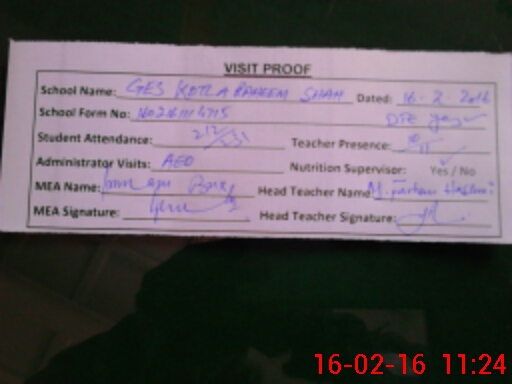 VISIT PROOF
School Name: GES KOTLA RAHEEM SHAH Dated: 16-2-2016
School Form No:
Student Attendance: 212/231 Teacher Presence: 10/11
Administrator Visits: AEO Nutrition Supervisor: Yes / No
MEA Name: Head Teacher Name: M.
MEA Signature: Head Teacher Signature:
16-02-16 11:24